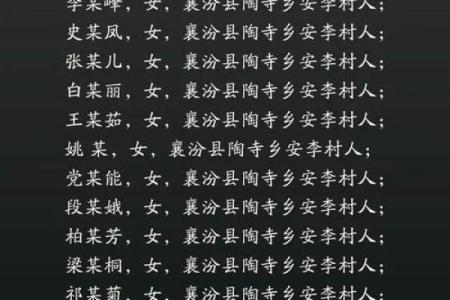 李某峰，女，襄汾县陶寺乡安李村人；
史某凤，女，襄汾县陶寺乡安李村人；
张某儿，女，襄汾县陶寺乡安李村人；
白某丽，女，襄汾县陶寺乡安李村人；
王某茹，女，襄汾县陶寺乡安李村人；
姚 某，女，襄汾县陶寺乡安李村人；
党某能，女，襄汾县陶寺乡安李村人；
段某娥，女，襄汾县陶寺乡安李村人；
柏某芳，女，襄汾县陶寺乡安李村人；
梁某桐，女，襄汾县陶寺乡安李村人；
祁某菊，女，襄汾县陶寺乡安李村人；